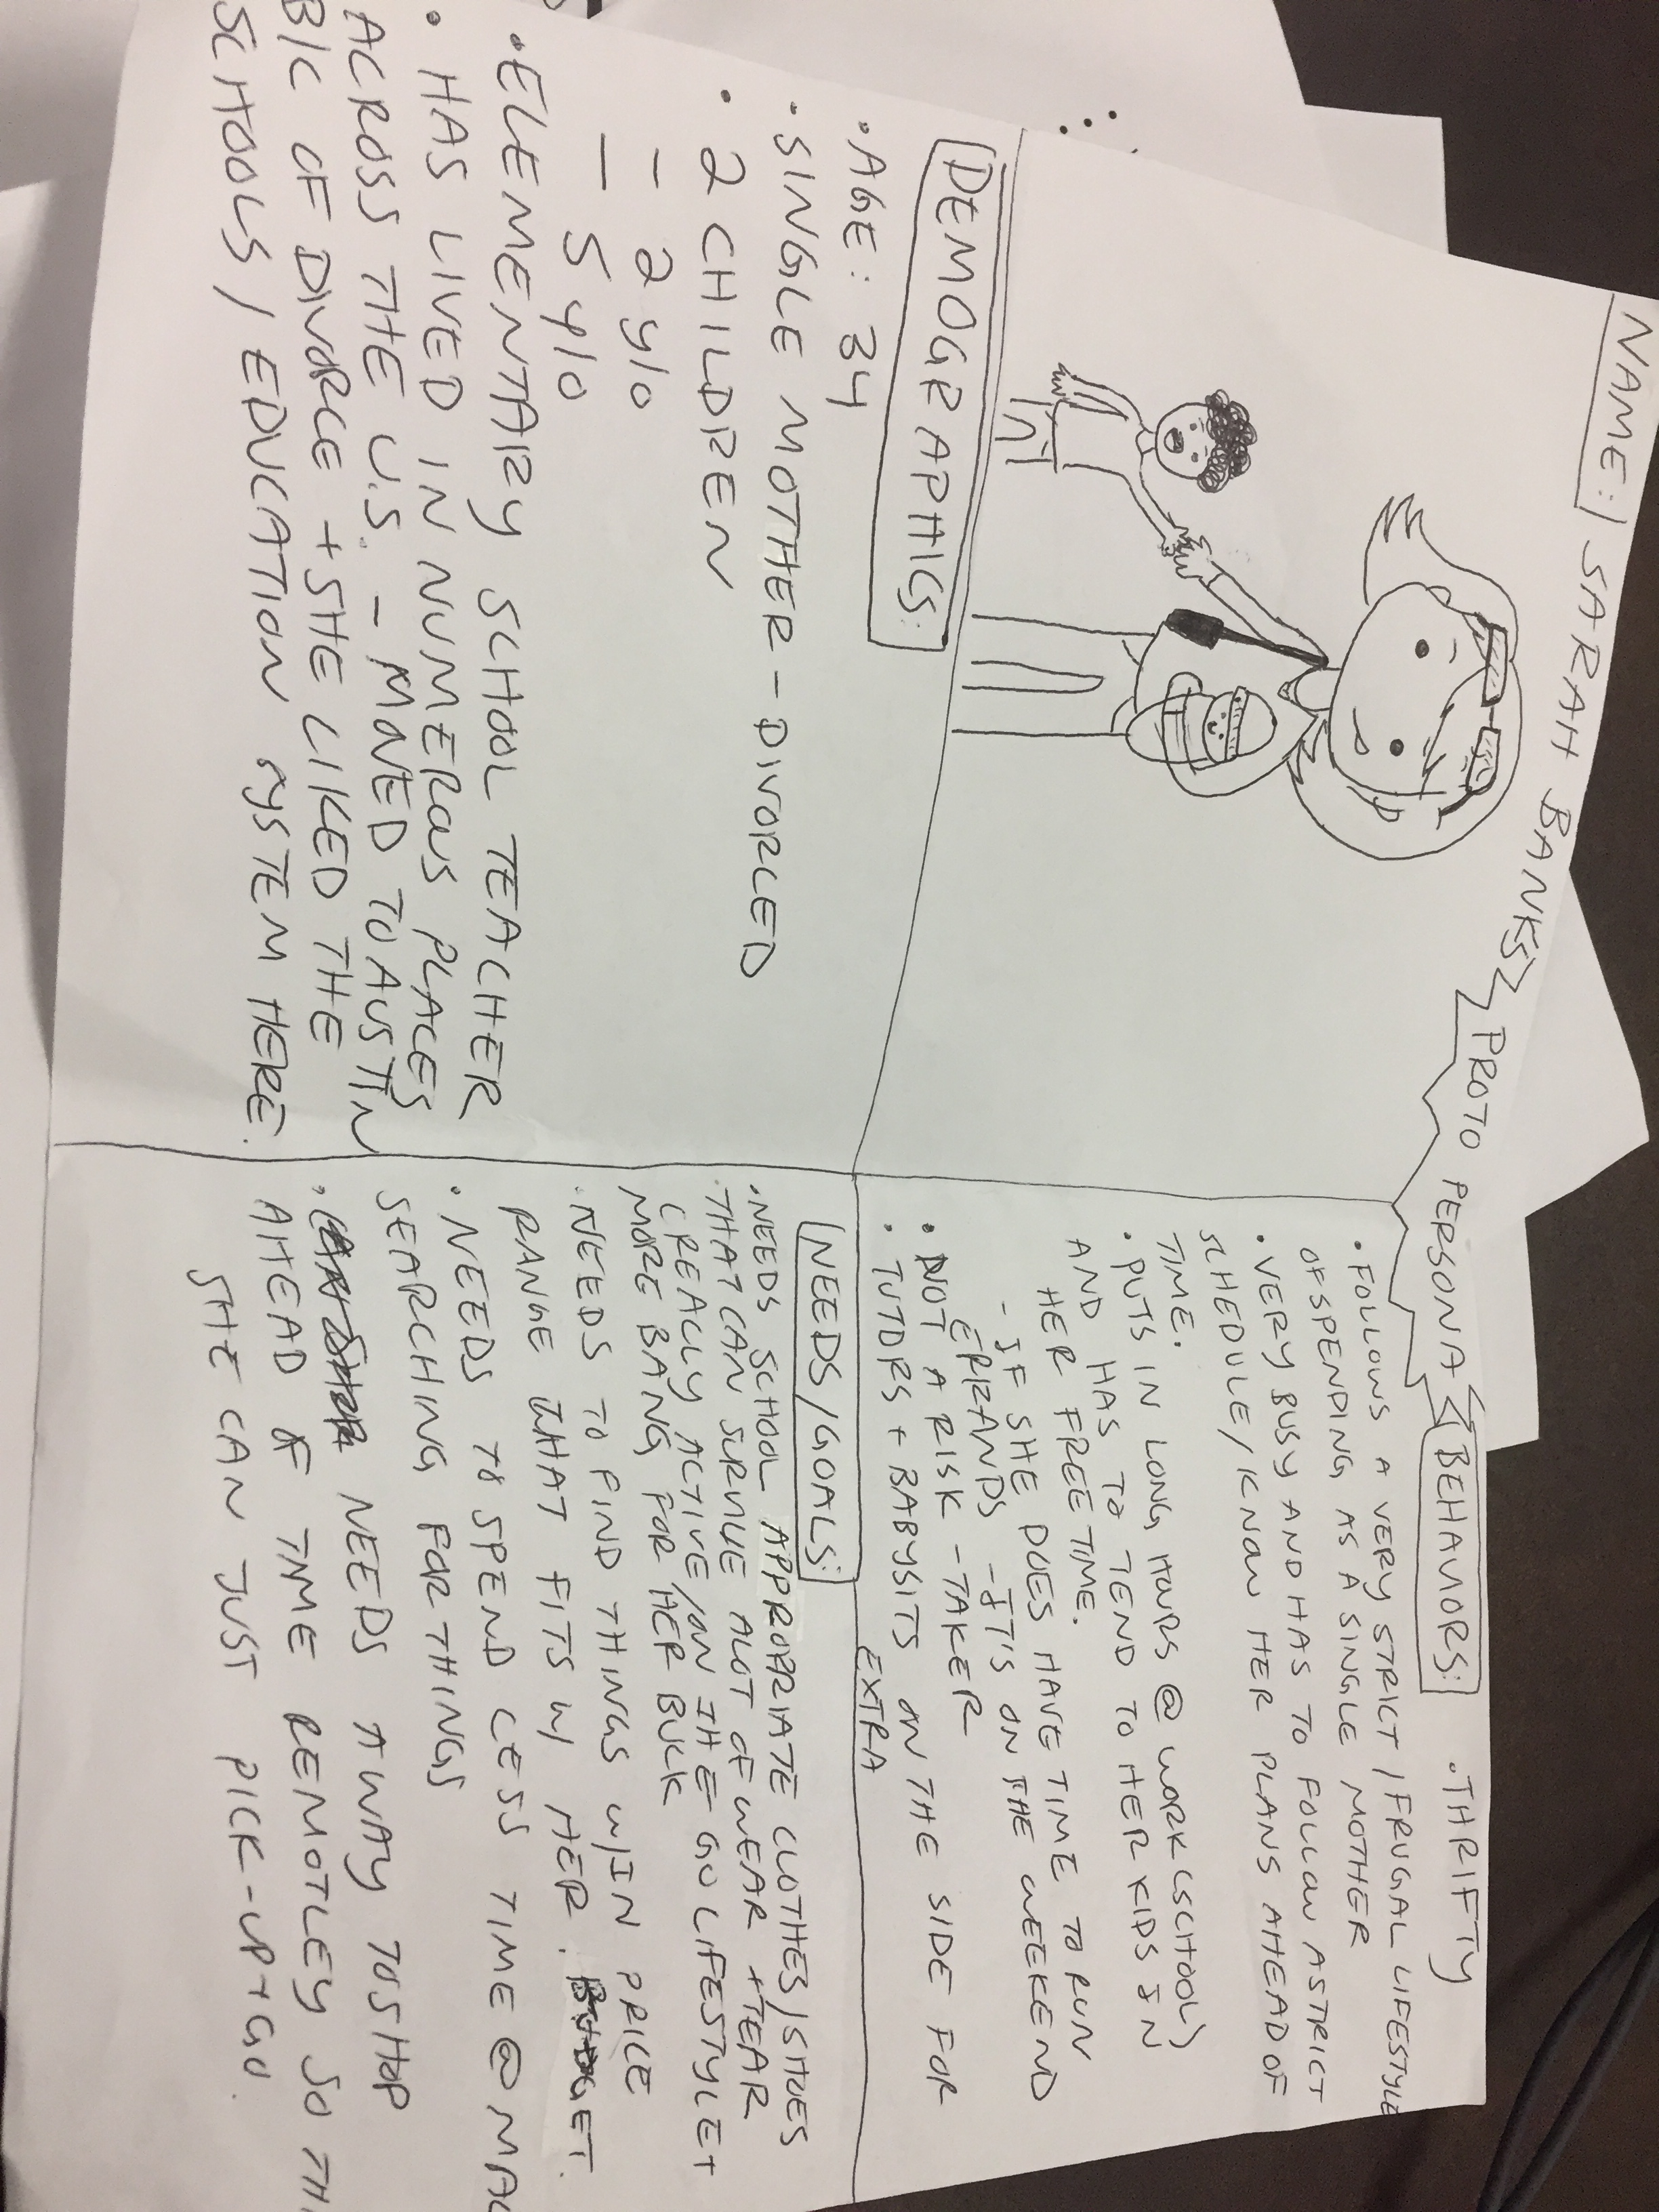 NAME: SARAH BANKS
PROTO PERSONA
DEMOGRAPHICS:
• AGE: 34
• SINGLE MOTHER - DIVORCED
• 2 CHILDREN
- 2 y/o
- 5 y/o
• ELEMENTARY SCHOOL TEACHER
• HAS LIVED IN NUMEROUS PLACES
ACROSS THE U.S. - MOVED TO AUSTIN
B/C OF DIVORCE + SHE LIKED THE
SCHOOLS / EDUCATION SYSTEM HERE.
BEHAVIORS: • THRIFTY
• FOLLOWS A VERY STRICT / FRUGAL LIFESTYLE
OF SPENDING AS A SINGLE MOTHER
• VERY BUSY AND HAS TO FOLLOW A STRICT
SCHEDULE / KNOW HER PLANS AHEAD OF
TIME.
• PUTS IN LONG HOURS @ WORK (SCHOOL)
AND HAS TO TEND TO HER KIDS IN
HER FREE TIME.
- IF SHE DOES HAVE TIME TO RUN
ERRANDS - IT'S ON THE WEEKEND
• NOT A RISK-TAKER
• TUTORS + BABYSITS ON THE SIDE FOR
EXTRA
NEEDS/GOALS:
• NEEDS SCHOOL APPROPRIATE CLOTHES/SHOES
THAT CAN SURVIVE ALOT OF WEAR + TEAR
(REALLY ACTIVE/ON THE GO LIFESTYLE +
MORE BANG FOR HER BUCK
• NEEDS TO FIND THINGS W/IN PRICE
RANGE THAT FITS IN HER BUDGET.
• NEEDS TO SPEND LESS TIME @
SEARCHING FOR THINGS
• NEEDS A WAY TO SHOP
AHEAD OF TIME REMOTLEY SO
SHE CAN JUST PICK-UP + GO.